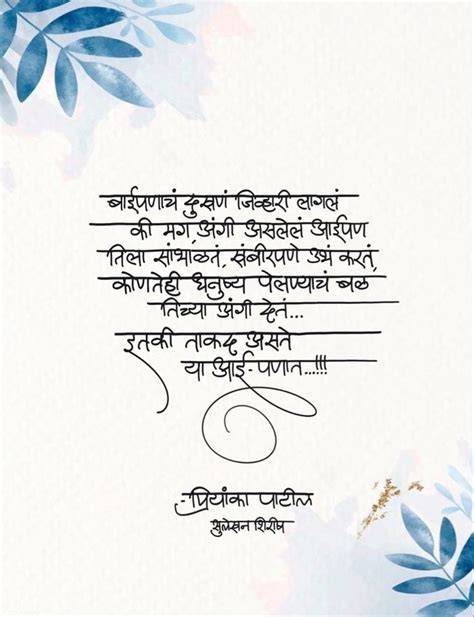 बाईपणाचं दुखणं जिव्हारी लागलं
की मग, अंगी असलेलं आईपण
तिला सांभाळतं, खंबीरपणे उभं करतं,
कोणतेही धनुष्य पेलण्याचं बळ
तिच्या अंगी देतं...
इतकी ताकद असते
या आई-पणात...!!!
-प्रियांका पाटील
सुलेखन शिरीष